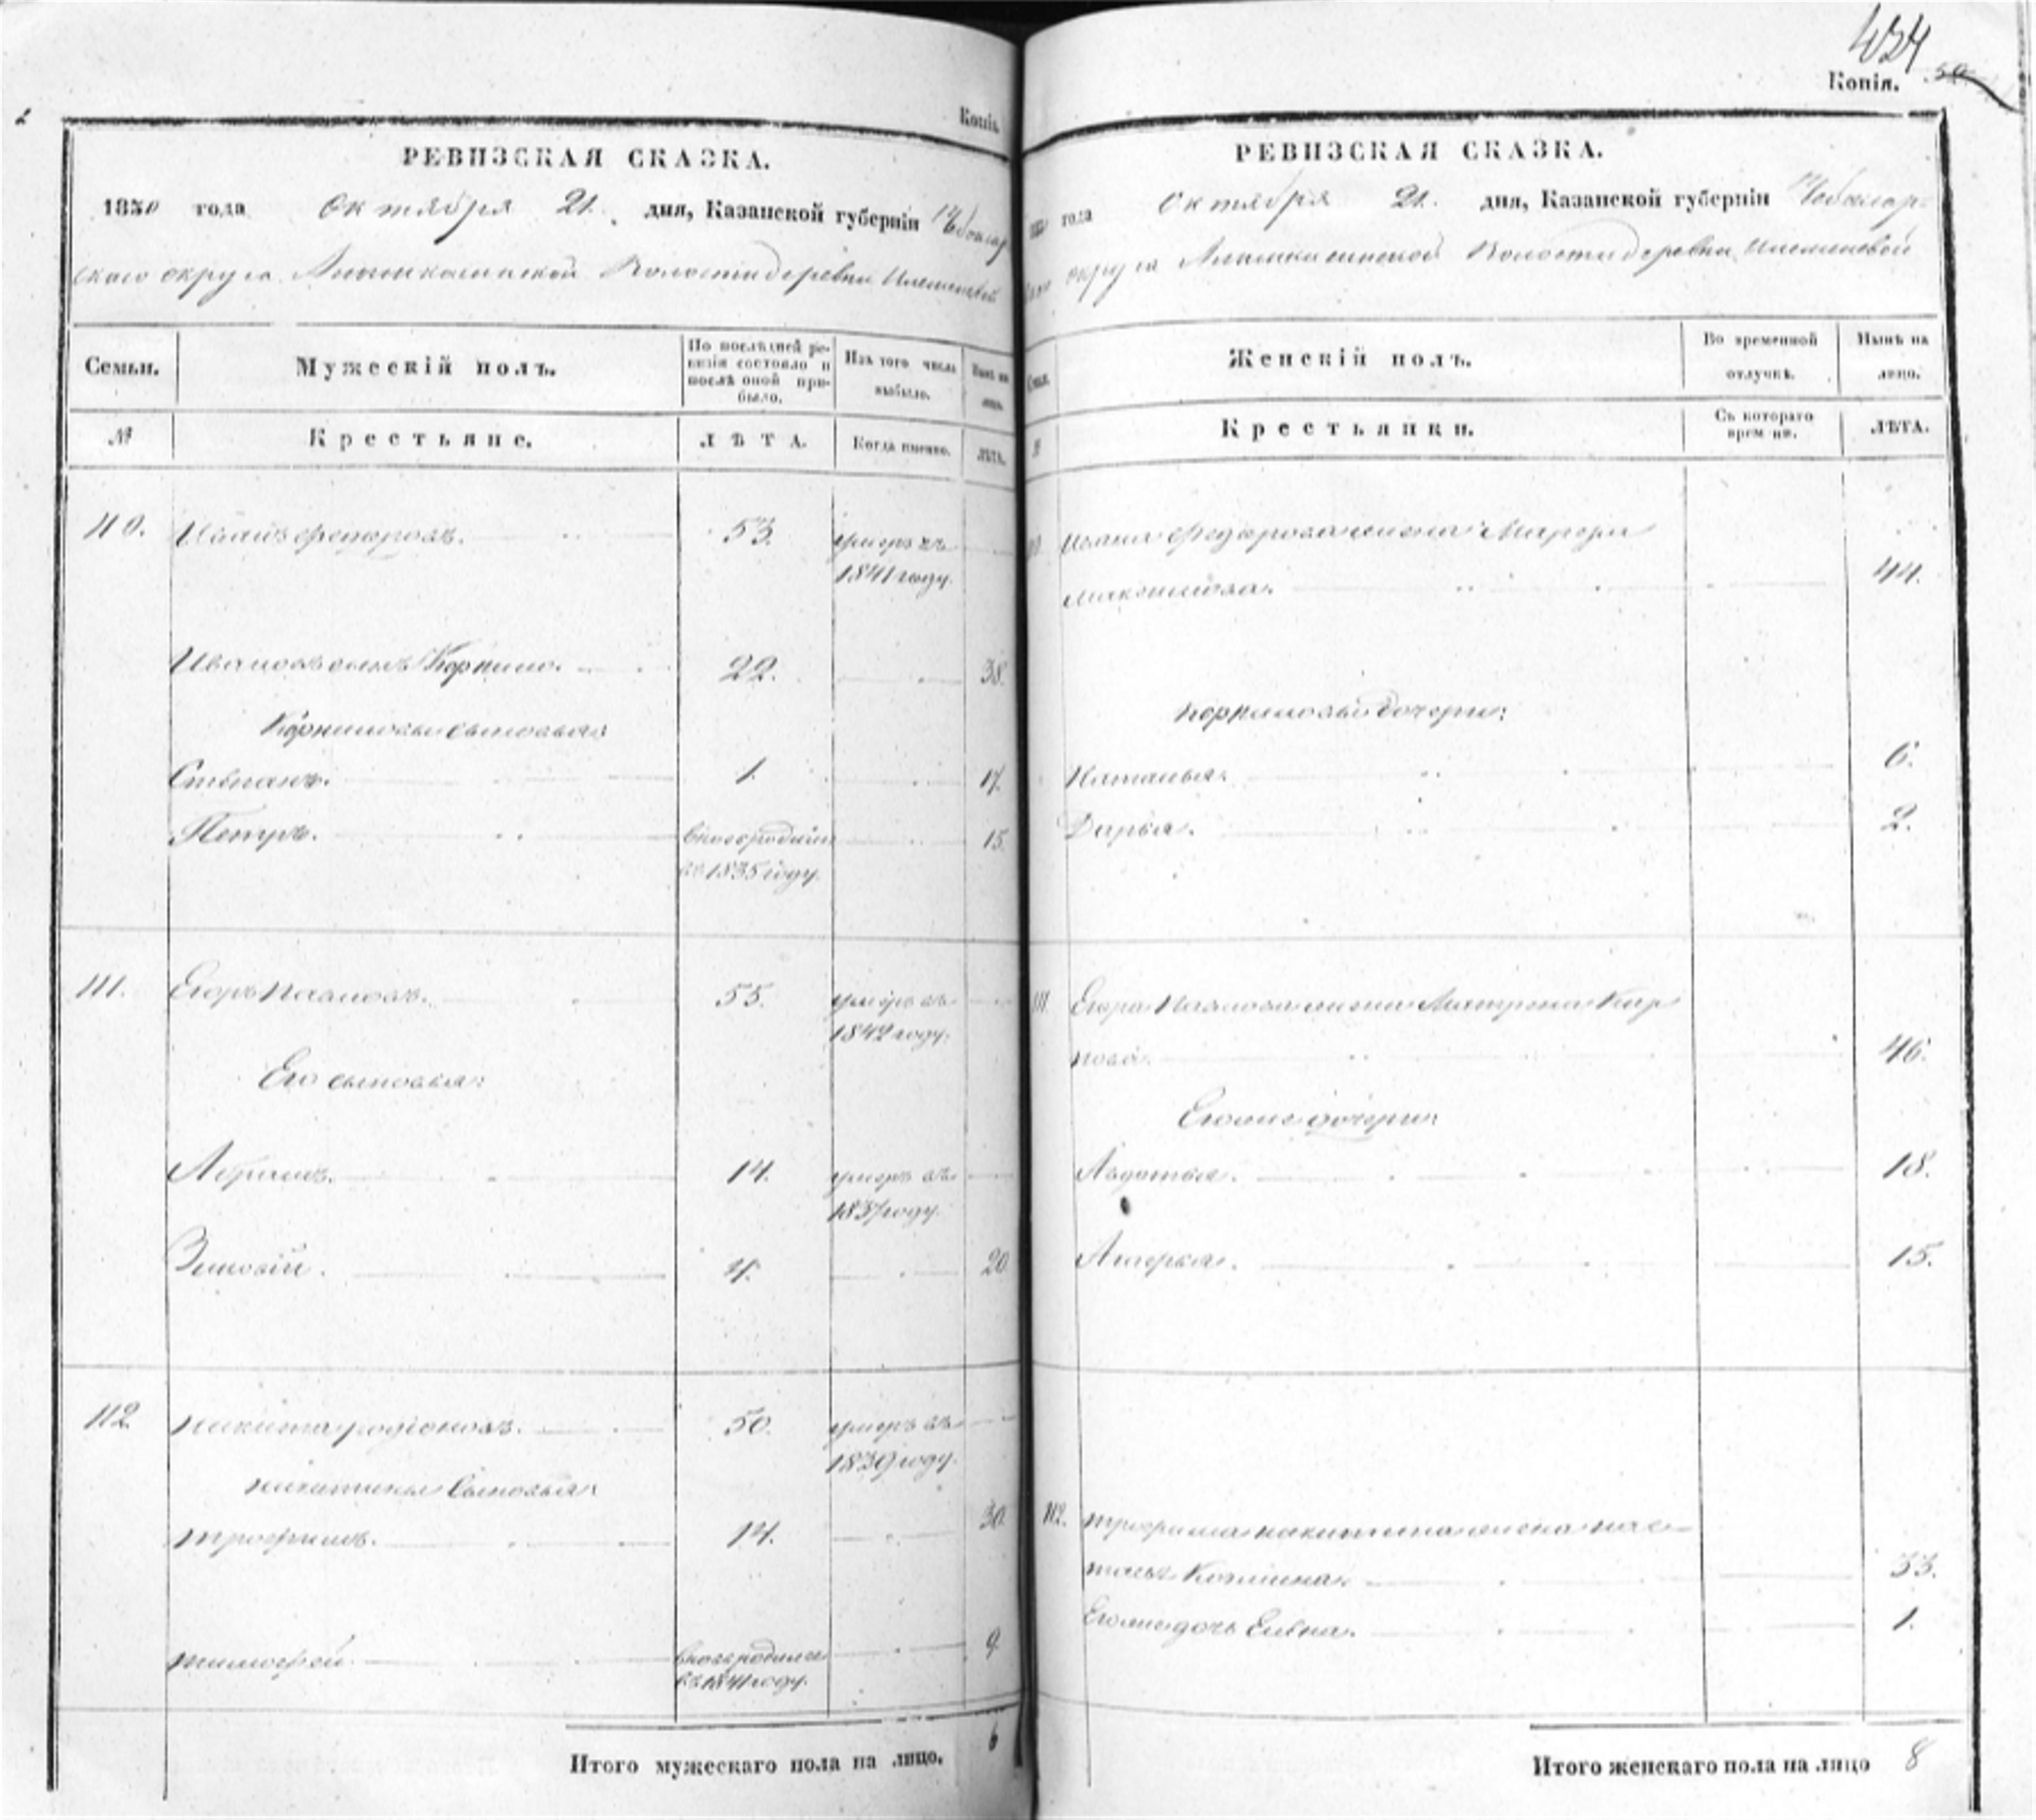 Копія.
РЕВИЗСКАЯ СКАЗКА.
1850 года Октября 21. дня, Казанской губерніи Чебоксар
скаго округа Волости деревни
Семьи. Мужескій полъ. По послѣдней ре-
визіи состояло и
послѣ оной при-
было. Изъ того числа
выбыло. Нынѣ на
лицо.
№ Крестьяне. ЛѢТА. Когда именно. ЛѢТА.
110. Иванъ Федоровъ. 53. умеръ въ
1841 году.
Ивановъ сынъ Корнило. 22. 38.
Корниловы сыновья:
Степанъ. 1. 17.
Петръ. 15.
въ 1835 году.
111. Егоръ Павловъ. 55. умеръ въ
1842 году.
Его сыновья:
Абрамъ. 14. умеръ въ
1837 году.
Зиновій. 4. 20.
112 Никита Родіоновъ. 50. умеръ въ
1839 году.
Никитины сыновья:
Трофимъ. 14. 30.
Тимофей 9.
въ 1841 году.
Итого мужескаго пола на лицо. 6
424
Копія. 50
РЕВИЗСКАЯ СКАЗКА.
года Октября 21. дня, Казанской губерніи Чебоксар-
округа Волости деревни
Семьи. Женскій полъ. Во временной
отлучкѣ. Нынѣ на
лицо.
№ Крестьянки. Съ котораго
времени. ЛѢТА.
Ивана Федорова жена Марфа
Максимова. 44.
Корниловы дочери:
Наталья. 6.
Дарья. 2.
111. Егора Павлова жена Матрена Кар
пова. 46.
Егоже дочери:
Авдотья. 18.
15.
112. Трофима Никитина жена Нас-
тасья 33.
Егоже дочь Елена. 1.
Итого женскаго пола на лицо 8